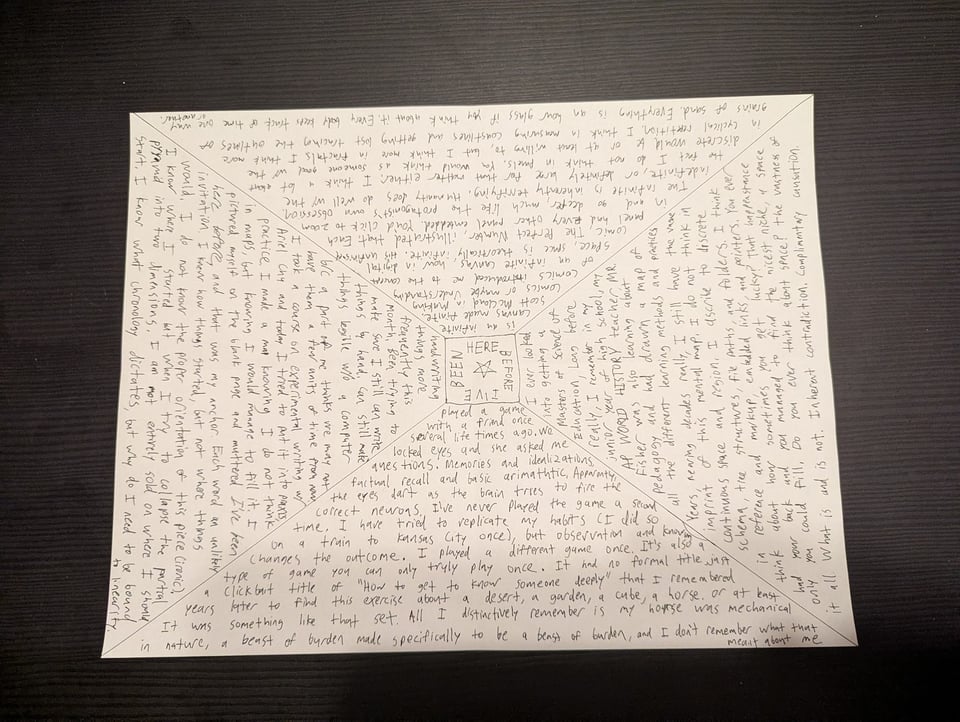 HERE
BEFORE
I'VE
BEEN
handwriting
things more
frequently this
month, been trying to
make sure I still can write
things by hand, can still make
things legible w/o a computer
b/c a part of me thinks we may not
have them a few units of time from now
I took a course on experimental writing w/
Ariel Chu and today I tried to put it into
practice I made a map knowing I do not think
in maps, but knowing I would manage to fill it. I
pictured myself on the blank page and muttered I've been
here before and that was my anchor. Each word an unlikely
invitation. I knew how things started, but not where things
would. I do not know the proper orientation of this piece (ironic),
I know where I started but when I try to collapse the partial
pyramid into two dimensions, I am not entirely sold on where I should
start. I know what chronology dictates, but why do I need to be bound
to linearity.
is an infinite
canvas made finite.
Scott McCloud in Making
Comics or maybe Understanding
Comics introduced me to the concept
of an infinite canvas, how in digital
space, space is theoretically infinite. His
comic The Perfect Number, illustrated that. Each
panel had every other panel embedded. You'd click to zoom
in and go deeper much like the protagonists own obsession.
The infinite is inherently terrifying. Humanity does not do well w/
indefinite or definitely large for that matter either. I think a lot about
the fact I do not think in pixels. You would think as someone good w/ the
discrete would be or at least willing to, but I think more in fractals I think more
in cyclical repetition. I think in measuring coastlines and getting lost tracing the outlines of
grains of sand. Everything is an hour glass if you think about it. Every body keeps track of time one way
or another.
I ever looked
into getting a
Masters of Science of
Education. Long before
really, I remember in my
junior year of high school, my
AP WORLD HISTORY teacher, MR
Fisher was also learning about
pedagogy and had drawn a map of
all the different learning methods and practices
Years, nearing decades really, I still have the vague
imprint of this mental map. I do not think in
continuous space and region. I describe to discrete
schema, tree structures, file paths, and folders. I think
in reference and markup, embedded links, and pointers. You ever
think about how sometimes you get lucky? That happenstance
had your back and you managed to find the nicest niche, a space
only you could fill. Do you ever think about space? the vastness of
it all. What is and is not. Inherent contradiction. Complimentary causation.
played a game
with a friend once,
several life times ago. We
locked eyes and she asked me
questions. Memories and idealizations,
factual recall and basic arimathtic. Apparently,
the eyes dart as the brain tries to fire the
correct neurons, I've never played the game a second
time. I have tried to replicate my habits (I did so
on a train to Kansas City once), but observation and knowing
changes the outcome. I played a different game once. It's also a
type of game you can only truly play once. It had no formal title, just a
clickbait title of "How to get to know someone deeply" that I remembered
years later to find this exercise about a desert, a garden, a cube, a horse. or at least
It was something like that set. All I distinctively remember is my horse was mechanical
in nature, a beast of burden made specifically to be a beast of burden, and I don't remember what that
meant about me